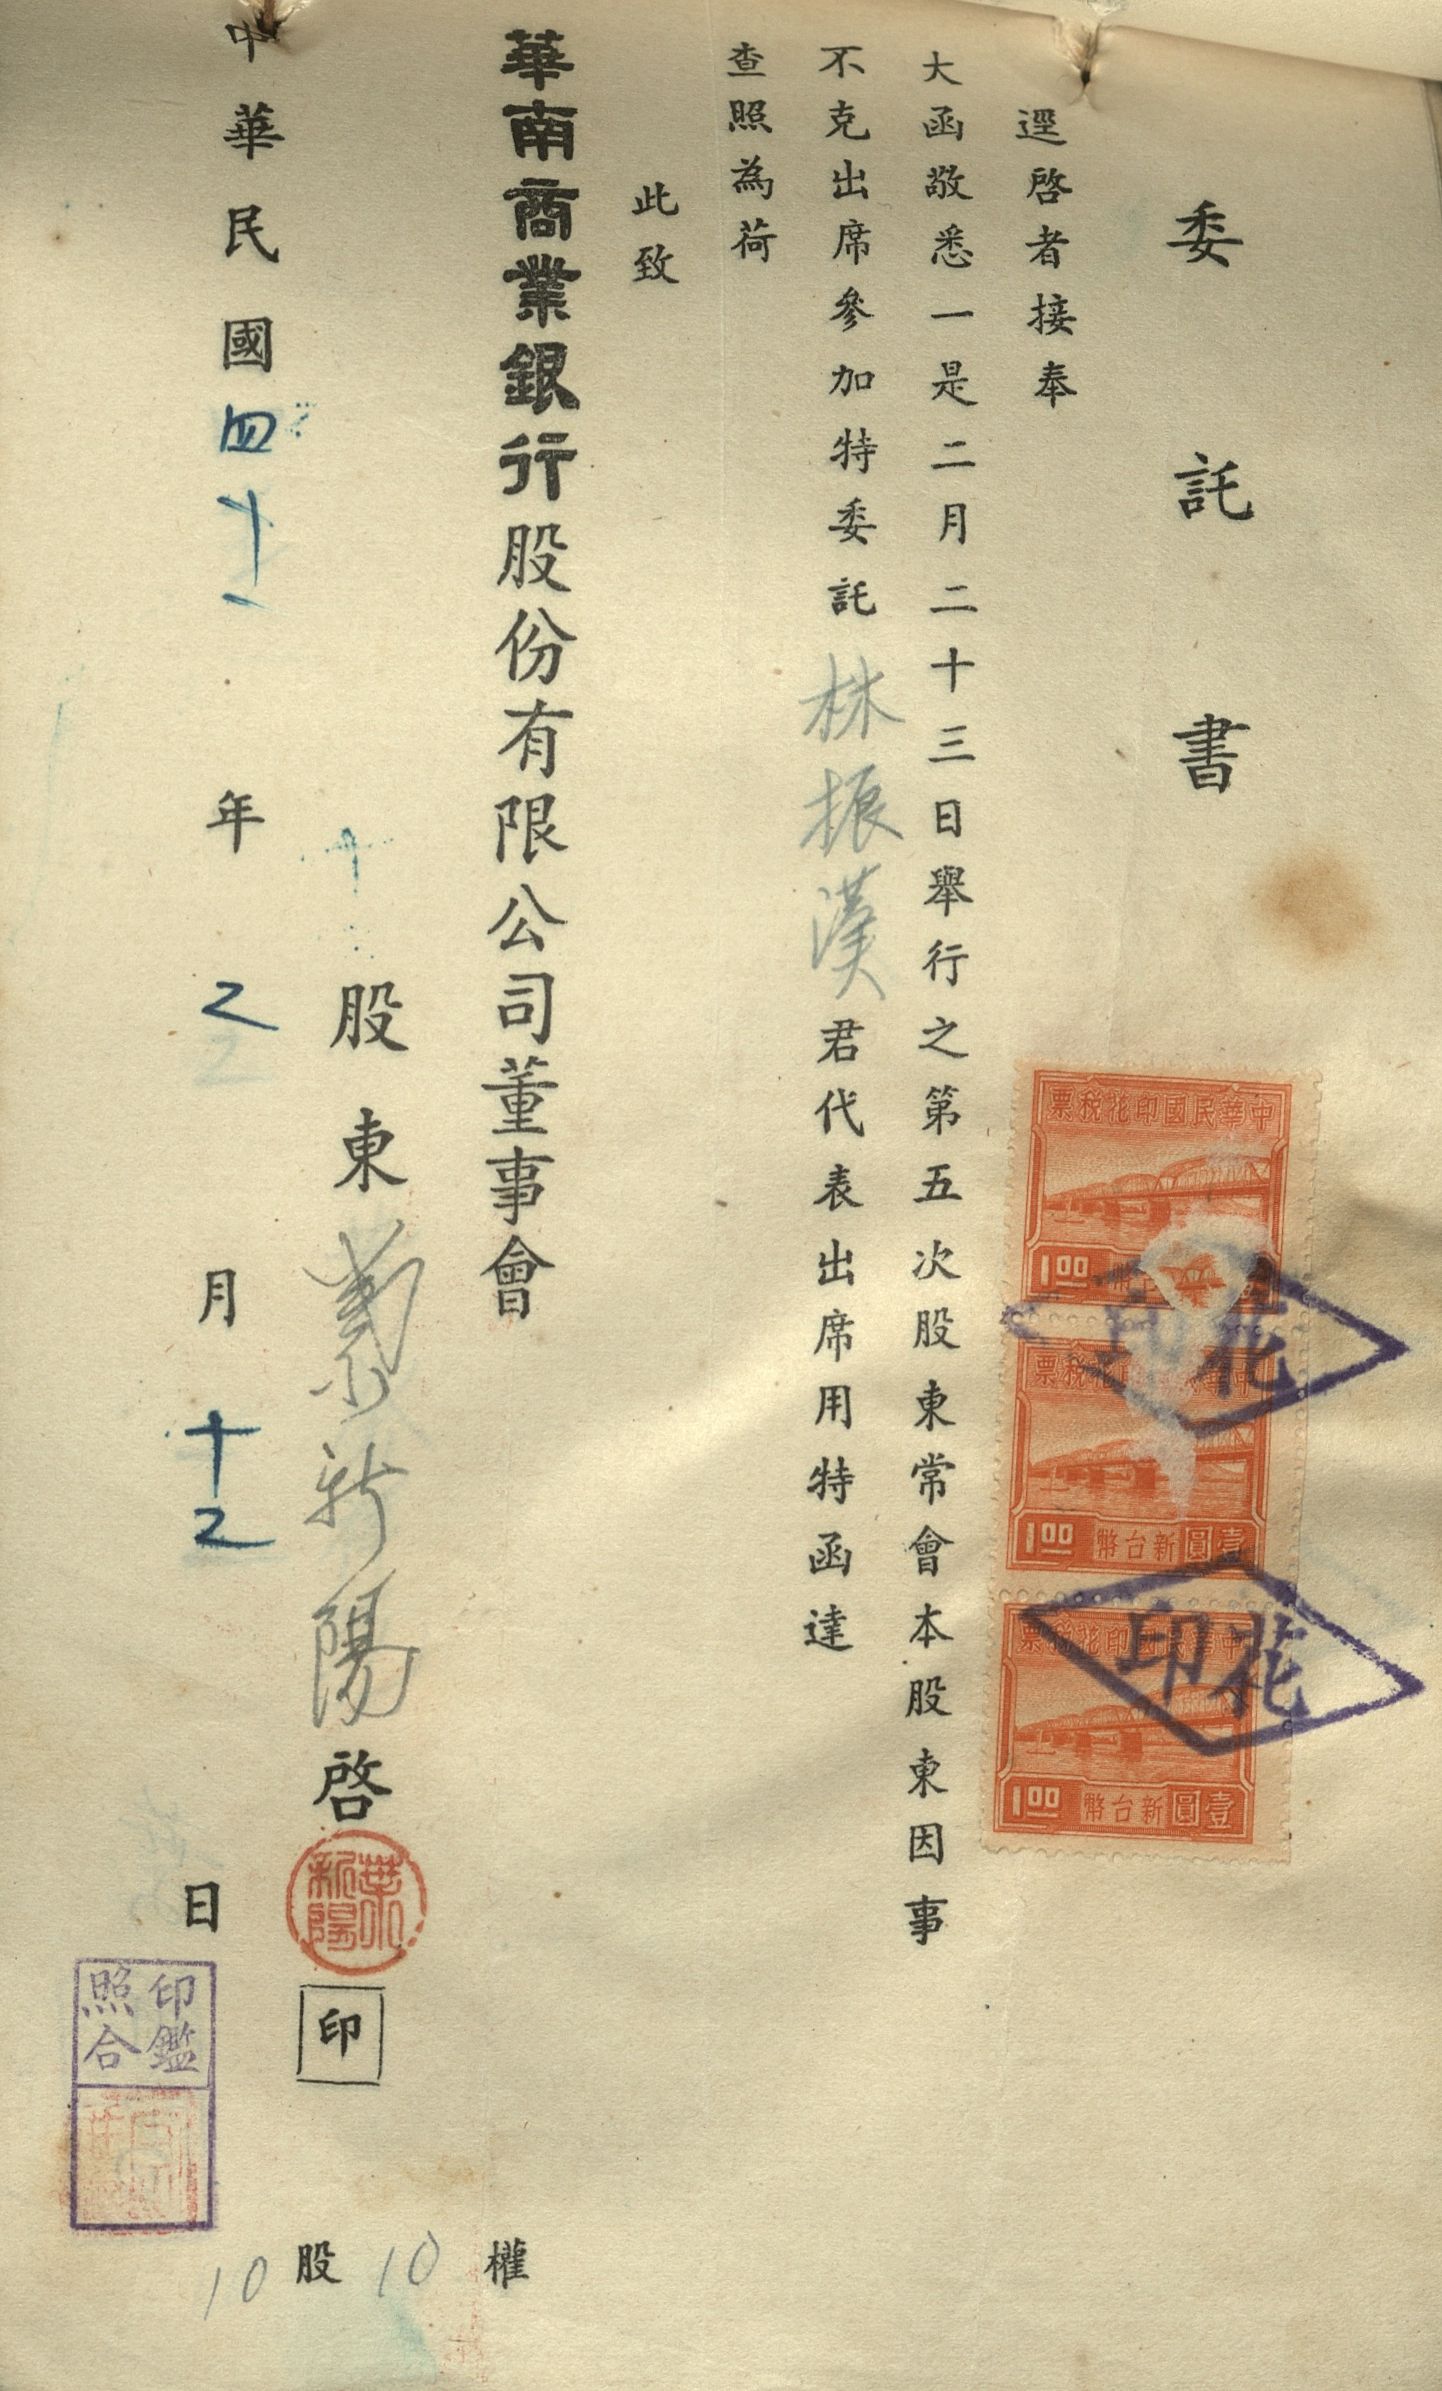 委託書
逕啓者接奉
大函敬悉一是二月二十三日舉行之第五次股東常會本股東因事
不克出席參加特委託林振漢君代表出席用特函達
查照為荷
此致
華南商業銀行股份有限公司董事會
股東葉新陽啓
葉新陽
印
中華民國四十一年2月十2日
印鑑
照合
10股10權
中華民國印花稅票
1.00
中華民國印花稅票
壹圓新台幣
1.00
中華民國印花稅票
壹圓新台幣
1.00
花印
花印